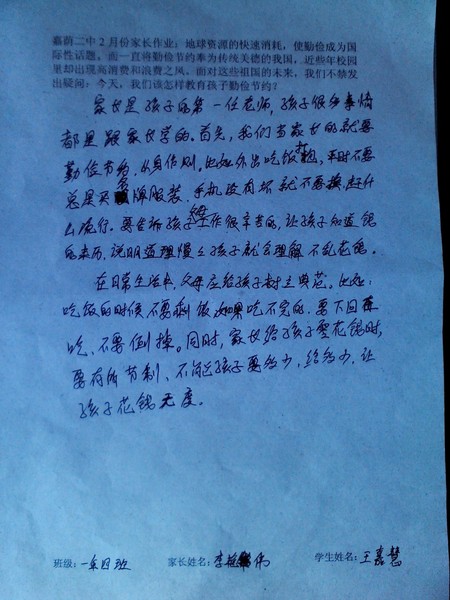 嘉荫二中2月份家长作业：地球资源的快速消耗，使勤俭成为国
际性话题，而一直将勤俭节约奉为传统美德的我国，近些年校园
里却出现高消费和浪费之风。面对这些祖国的未来，我们不禁发
出疑问：今天，我们该怎样教育孩子勤俭节约？
家长是孩子的第一任老师，孩子很多事情
都是跟家长学的。首先，我们当家长的就要
勤俭节约，从身作则。比如外出吃饭打包，平时不要
总是买名牌服装、手机没有坏就不要换，赶什
么流行。要告诉孩子工作很辛苦的，让孩子知道钱
的来历，说明道理慢慢孩子就会理解不乱花钱。
在日常生活中，父母应给孩子树立典范。比如：
吃饭的时候不要剩饭，如果吃不完的，要下回再
吃、不要倒掉。同时，家长给孩子零花钱时，
要有所节制、不能孩子要多少，给多少，让
孩子花钱无度。
班级：一年四班 家长姓名：李 伟 学生姓名：王嘉慧